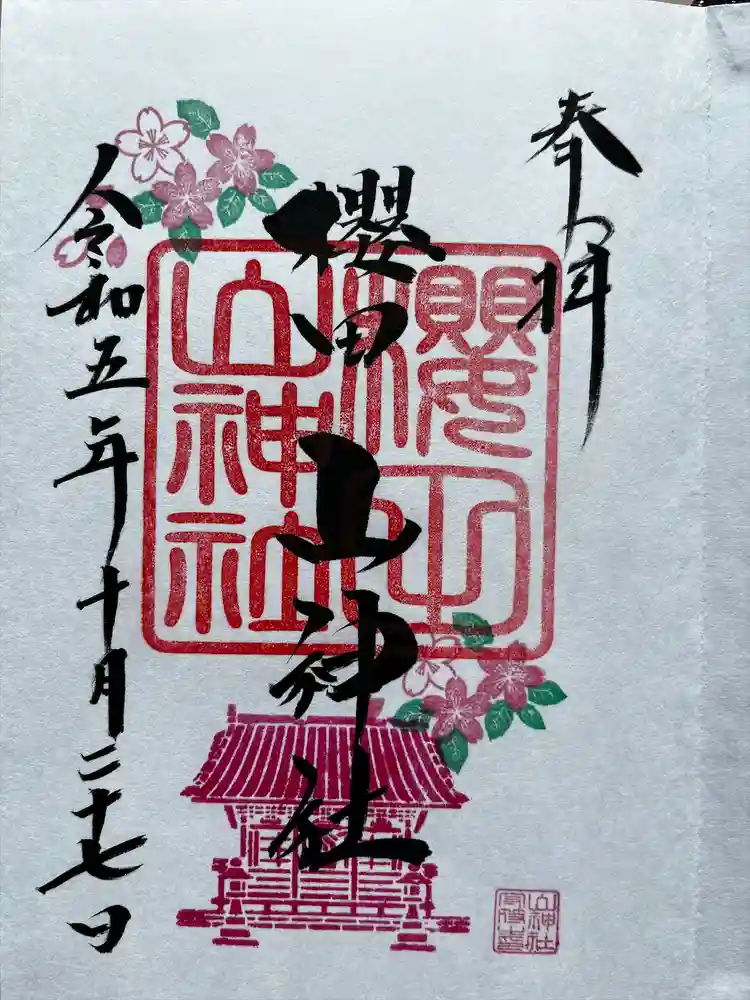 奉拝
櫻田山神社
令和五年十月二十七日
櫻田山神社